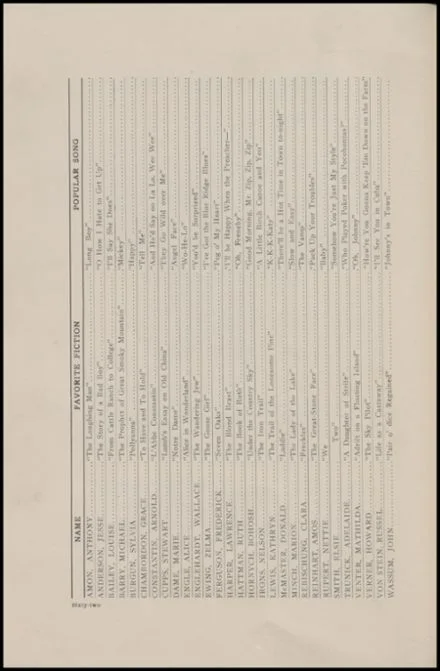 NAME FAVORITE FICTION POPULAR SONG
AMON, ANTHONY "The Laughing Man" "Long Boy"
ANDERSON, JESSE "The Story of a Bad Boy" "O How I Hate to Get Up"
BAILEY, LOUISE "From Cattle Ranch to College" "I'll Say She Does"
BARRY, MICHAEL "The Prophet of Great Smoky Mountain" "Mickey"
BURGUN, SYLVIA "Pollyanna" "Happy"
CHAMBORDON, GRACE "To Have and To Hold" "Tell Me"
CONSTANTIN, ARNOLD "L'Abbe Constantin" "And He'd Say oo La La, Wee Wee"
CUPPS, STEWART "Lamb's Essay on Old China" "They Go Wild over Me"
DAME, MARIE "Notre Dame" "Angel Face"
ENGLE, ALICE "Alice in Wonderland" "Wo-He-Lo"
ENGLEHARDT, WALLACE "The Wandering Jew" "You'd be Surprised"
EWING, ZELMA "The Goose Girl" "I've Got the Blue Ridge Blues"
FERGUSON, FREDERICK "Seven Oaks" "Peg o' My Heart"
HARPER, LAWRENCE "The Blond Beast" "I'll be Happy When the Preacher—"
HATTMAN, RUTH "The Book of Ruth" "Oh, Frenchy"
HORNYCH, BOHOSH "Under the Country Sky" "Good Morning, Mr. Zip, Zip, Zip"
IRONS, NELSON "The Iron Trail" "A Little Birch Canoe and You"
LEWIS, KATHRYN "The Trail of the Lonesome Pine" "K-K-K-Katy"
McMASTER, DONALD "Laddie" "There'll be a Hot Time in Town to-night"
MINCH, MARION "The Lady of the Lake" "Slow and Easy"
REBISCHUNG, CLARA "Freckles" "The Vamp"
REINHART, AMOS "The Great Stone Face" "Pack Up Your Troubles"
RUPERT, NETTIE "We "Baby"
SMITH, LESLIE Two" "Somehow You're Just My Style"
TRUNICK, ADELAIDE "A Daughter of Strife" "Who Played Poker with Pocohontas?"
VENTER, MATHILDA "Adrift on a Floating Island" "Oh, Johnny"
VERNER, HOWARD "The Sky Pilot" "How're You Gonna Keep Him Down on the Farm"
VON STEIN, RUSSEL "Life as a Castaway" "I'll See You in Cuba"
WASSUM, JOHN "Pair o' dice Regained" "Johnny's in Town"
Sixty-two